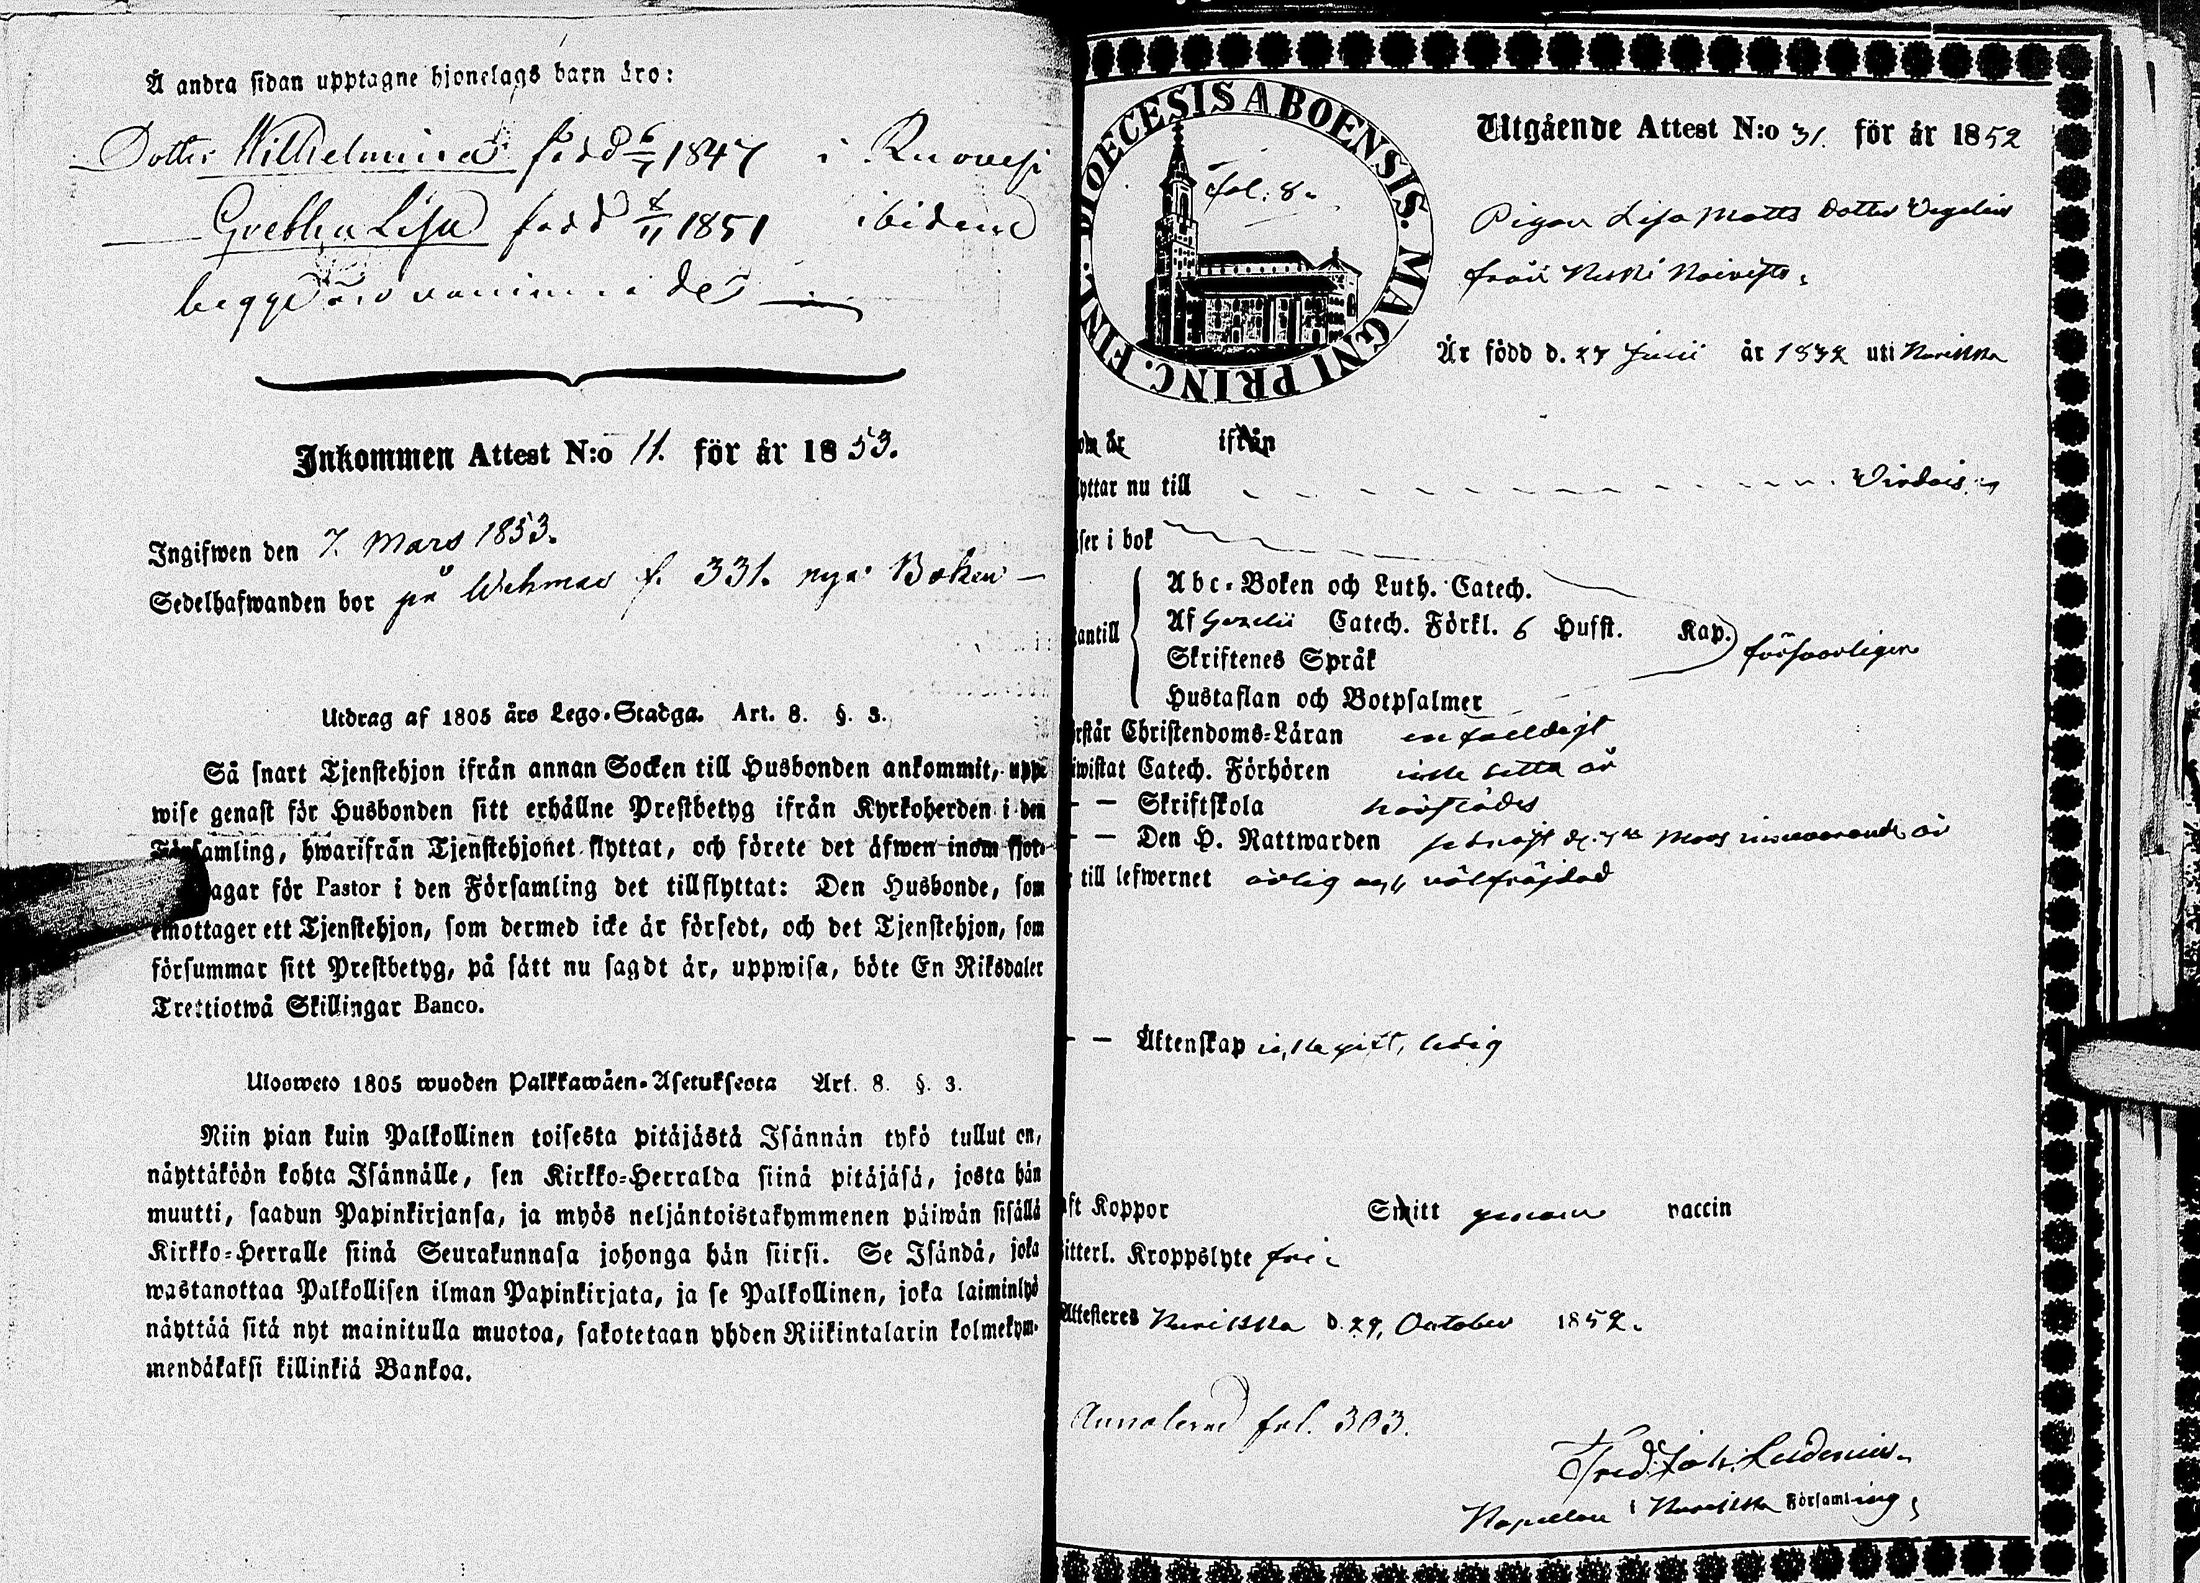 Å andra sidan upptagne hjonelags barn äro:
Dotter Wilhelmina född 6/7 1847 i Ruovesi
Gretha Lisa född 4/11 1851 ibidem
begge äro
Inkommen Attest N:o 11. för år 1853.
Ingifwen den 7. Mars 1853.
Sedelhafwanden bor på Wehmas f. 331. nya Boken
Utdrag af 1805 års Lego-Stadga. Art. 8. §. 3.
Så snart Tjenstehjon ifrån annan Socken till Husbonden ankommit, uppe
wise genast för Husbonden sitt erhållne Prestbetyg ifrån Kyrkoherden i den
Församling, hwarifrån Tjenstehjonet flyttat, och förete det äfwen inom fjor-
agar för Pastor i den Församling det tillflyttat: Den Husbonde, som
emottager ett Tjenstehjon, som dermed icke är försedt, och det Tjenstehjon, som
försummar sitt Prestbetyg, på sätt nu sagdt är, uppwisa, böte En Riksdaler
Trettiotwå Skillingar Banco.
Ulosweto 1805 wuoden Palkkawäen-Asetuksesta Art. 8. §. 3.
Niin pian kuin Palkollinen toisesta pitäjästä Isännän tykö tullut on,
näyttäköön kohta Isännälle, sen Kirkko-Herralda siinä pitäjäsä, josta hän
muutti, saadun Papinkirjansa, ja myös neljäntoistakymmenen päiwän sisällä
Kirkko-Herralle siinä Seurakunnasa johonga hän siirsi. Se Isändä, joka
wastanottaa Palkollisen ilman Papinkirjata, ja se Palkollinen, joka laiminlyö
näyttää sitä nyt mainitulla muotoa, sakotetaan yhden Riikintalarin kolmekym-
mendäkaksi killinkiä Bankoa.
DIOECESIS ABOENSIS. MAGNI PRINC. FINL.
Fol: 8.
Utgående Attest N:o 31. för år 1852
Pigan Lisa Matts dotter
från Koivisto
Är född d. 27 Junii år 1832 uti Kurikka
om år ifrån
lyttar nu till Virdois
äser i bok
antill
Abc-Boken och Luth. Catech.
Af Gezelii Catech. Förkl. 6 Hufst. Kap.
försvarligen
Skriftenes Språk
Hustaflan och Botpsalmer
rstår Christendoms-Läran enfaldigt
iwistat Catech. Förhören detta år
— — Skriftskola
— — Den H. Nattwarden sednast d. 7 Mars innevarande år
till lefwernet ärlig och välfrejdad
— — Äktenskap icke gift, ledig
aft Koppor Smitt genom vaccin
itterl. Kroppslyte fri
Attesteres Kurikka d. 29, October 1852.
Annoterad fol. 303.
Fred. Joh.
Kapellan i Kurikka Församling